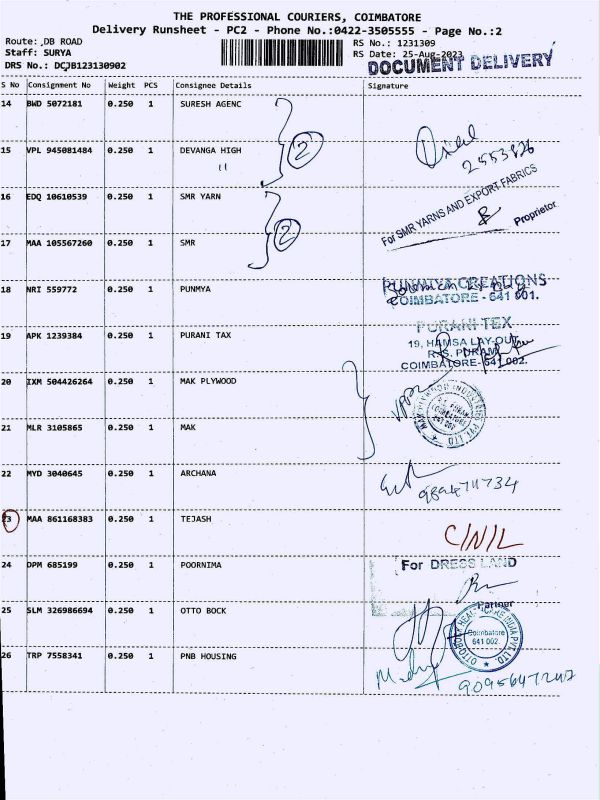 THE PROFESSIONAL COURIERS, COIMBATORE
Delivery Runsheet - PC2 - Phone No.:0422-3505555 - Page No.:2
Route: DB ROAD RS No.: 1231309
Staff: SURYA RS Date: 25-Aug-2023
DRS No.: DCJB123130902 DOCUMENT DELIVERY
S No Consignment No Weight PCS Consignee Details Signature
14 BWD 5072181 0.250 1 SURESH AGENC
2
15 VPL 945081484 0.250 1 DEVANGA HIGH 2553826
11
For SMR YARNS AND EXPORT FABRICS
Proprietor
16 EDQ 10610539 0.250 1 SMR YARN
2
17 MAA 105567260 0.250 1 SMR
18 NRI 559772 0.250 1 PUNMYA PUNMIYA CREATIONS
COIMBATORE - 641 001.
19 APK 1239384 0.250 1 PURANI TAX PURANI TEX
19, HAMSA LAY-OUT,
R.S. PURAM,
COIMBATORE-641 002.
20 IXM 504426264 0.250 1 MAK PLYWOOD
MAK PLYWOOD INDUSTRIES PVT. LTD
R.S. PURAM
COIMBATORE
641 002
21 MLR 3105865 0.250 1 MAK
22 MYD 3040645 0.250 1 ARCHANA
23 MAA 861168383 0.250 1 TEJASH C/N/L
24 DPM 685199 0.250 1 POORNIMA For DRESS LAND
Partner
25 SLM 326986694 0.250 1 OTTO BOCK
OTTOBOCK HEALTHCARE INDIA PVT. LTD.
Coimbatore
641 002.
26 TRP 7558341 0.250 1 PNB HOUSING